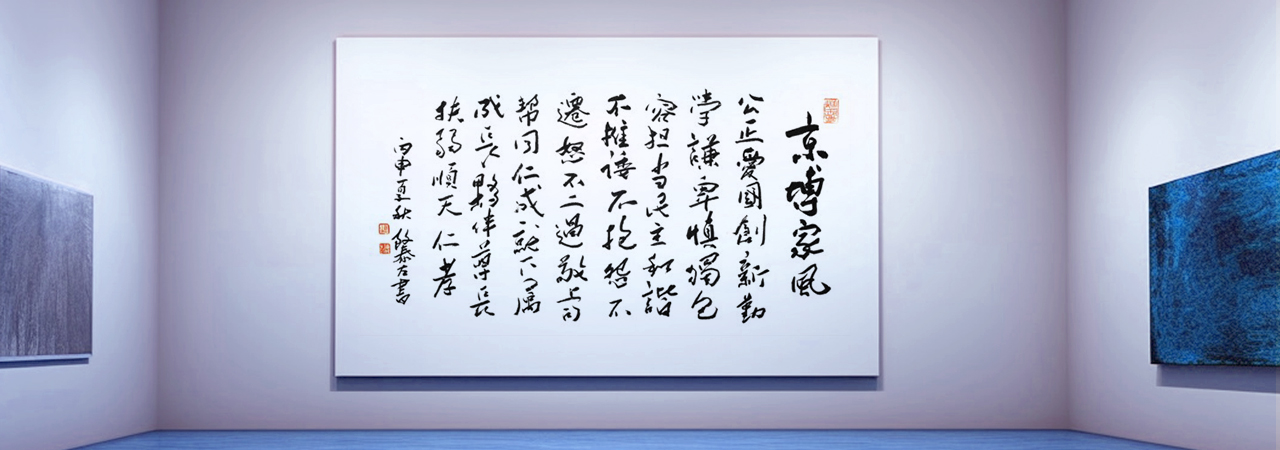 京博家風
公正愛國創新勤
學謙卑慎獨包
容担当民主和諧
不推諉不抱怨不
遷怒不二過敬上司
幫同仁成就下属
成長夥伴尊長
扶弱順天仁孝
丙申夏秋 左書